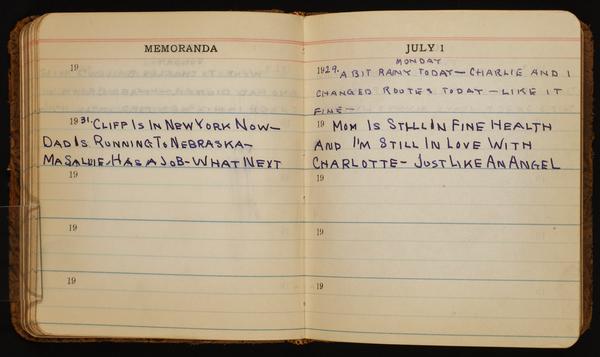 MEMORANDA
19
1931. CLIFF IS IN NEW YORK NOW—
DAD IS RUNNING TO NEBRASKA—
MA SALLIE, HAS A JOB- WHAT NEXT
19
19
19
JULY 1
MONDAY
1929. A BIT RAINY TODAY— CHARLIE AND I
CHANGED ROUTES TODAY — LIKE IT
FINE—
19 MOM IS STILL IN FINE HEALTH
AND I'M STILL IN LOVE WITH
CHARLOTTE- JUST LIKE AN ANGEL
19
19
19